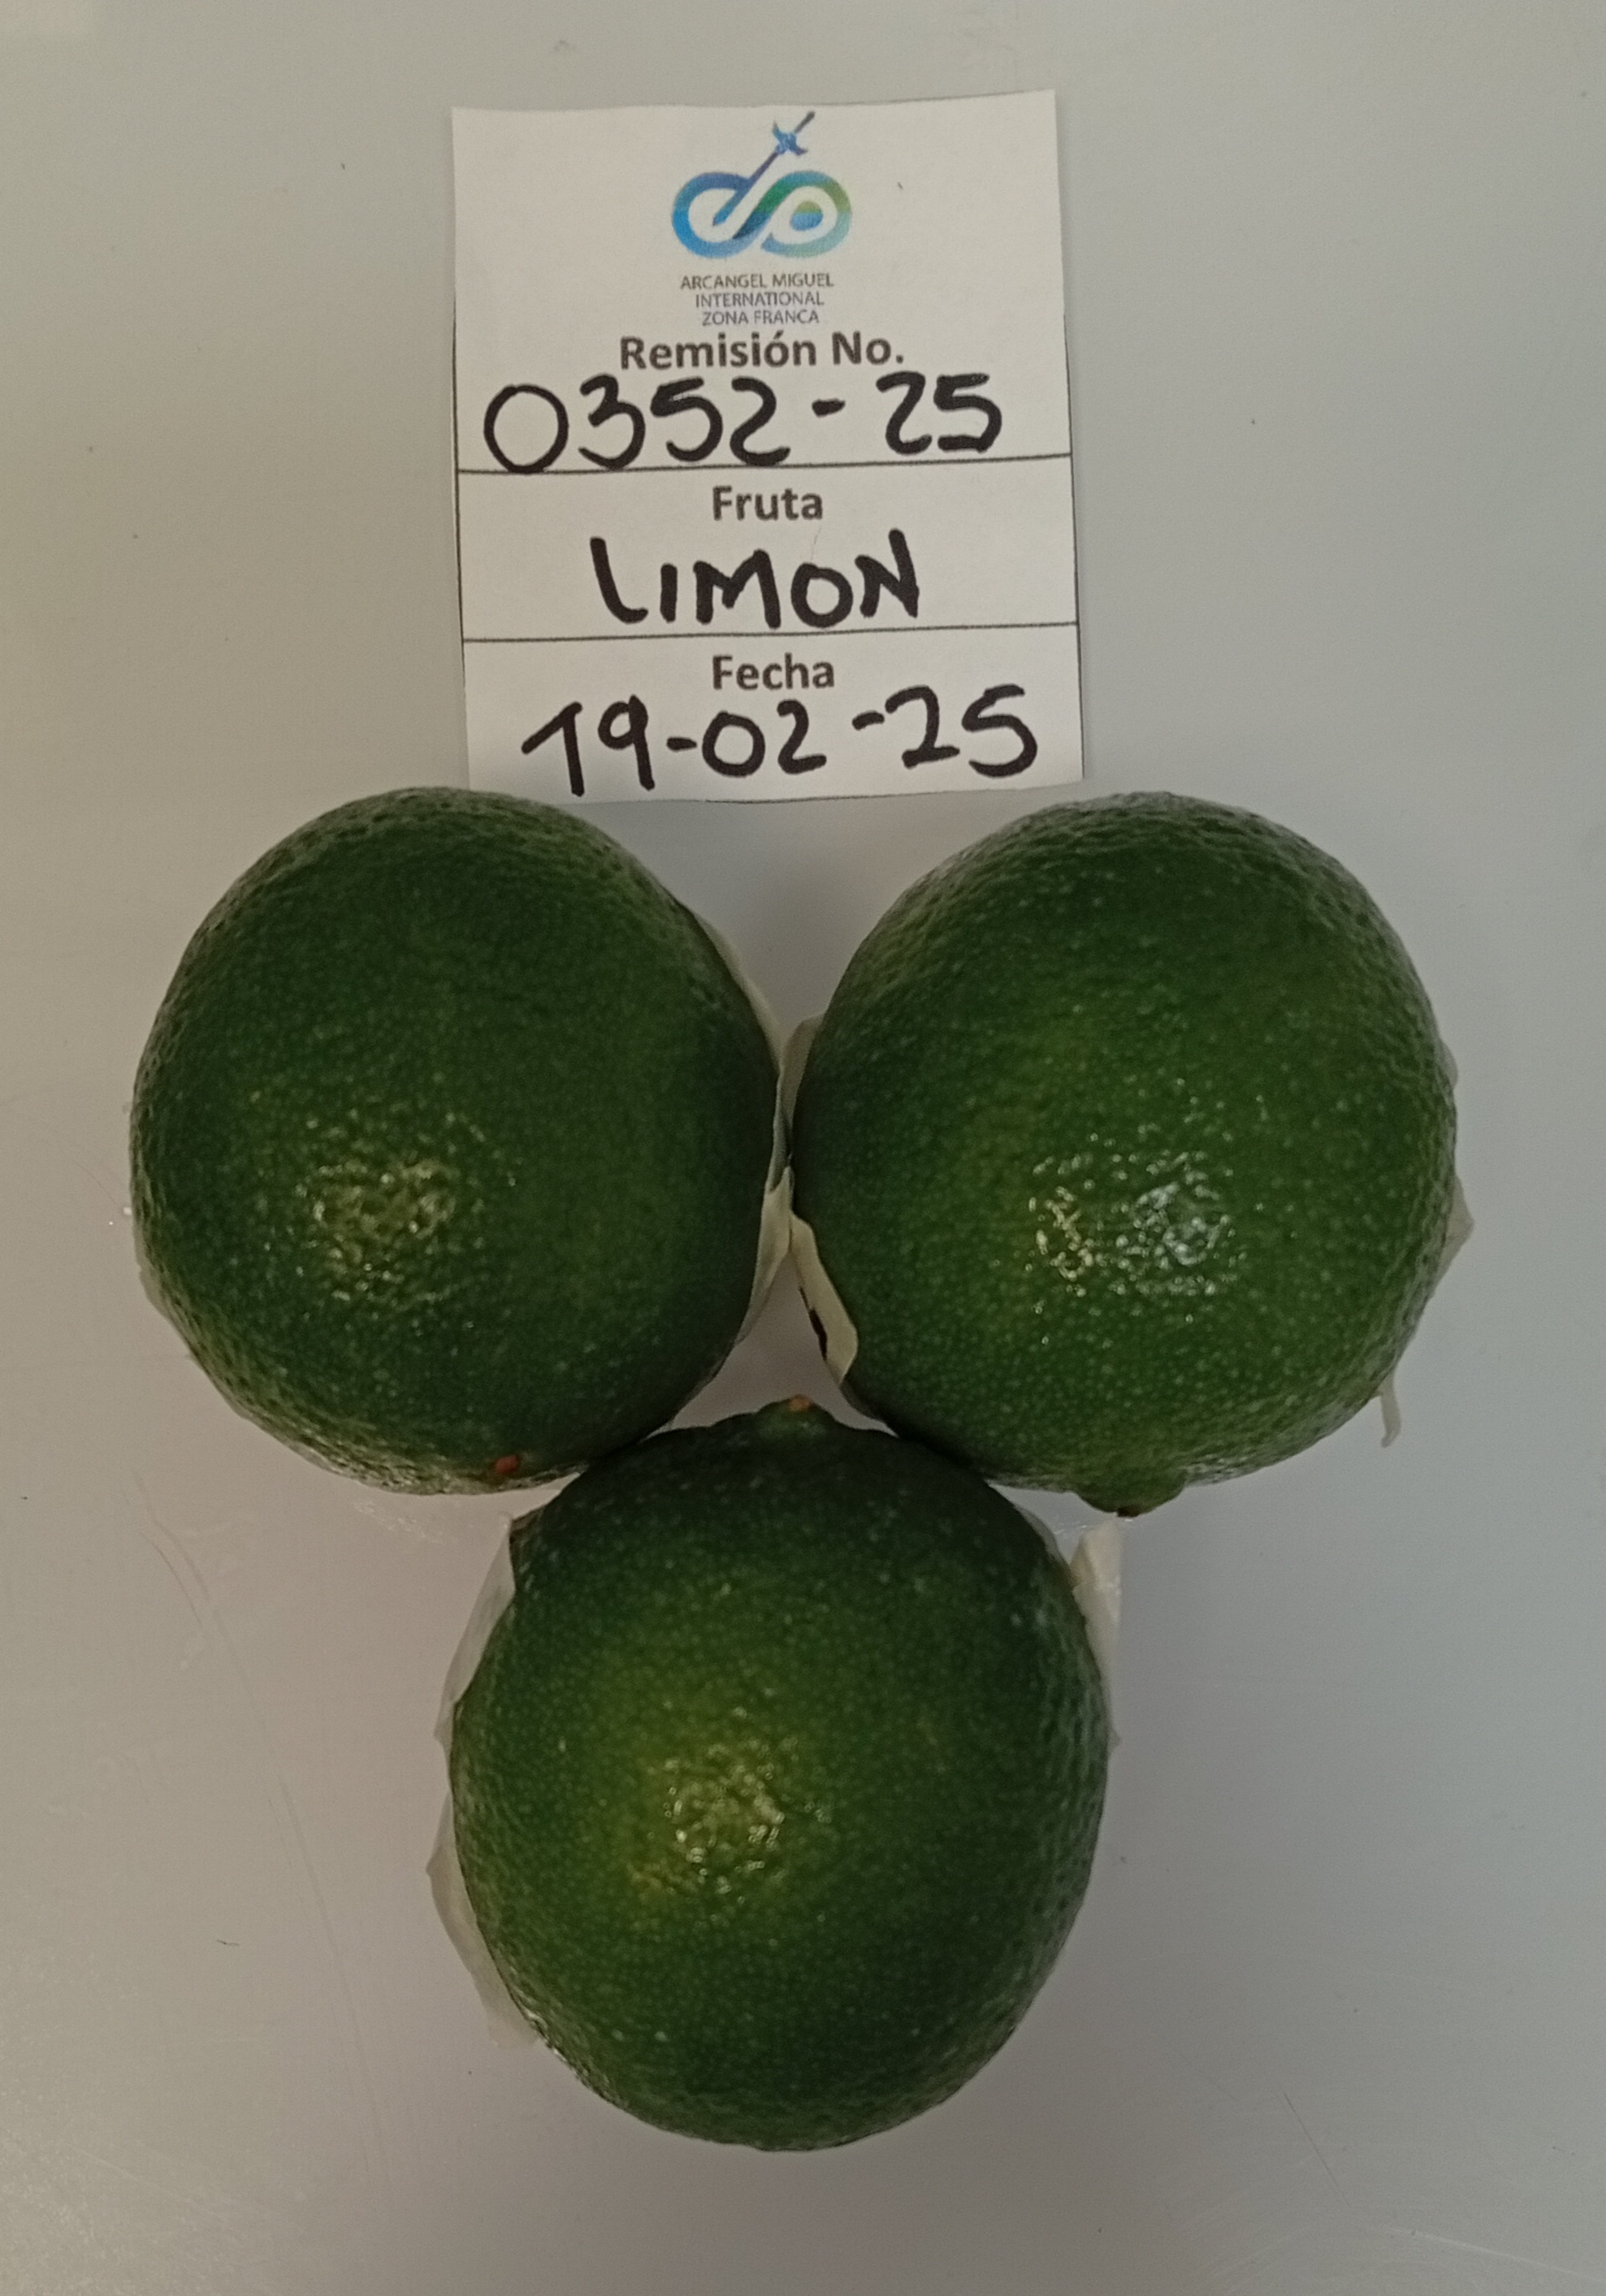 ARCANGEL MIGUEL
INTERNATIONAL
ZONA FRANCA
Remisión No.
0352-25
Fruta
LIMON
Fecha
19-02-25